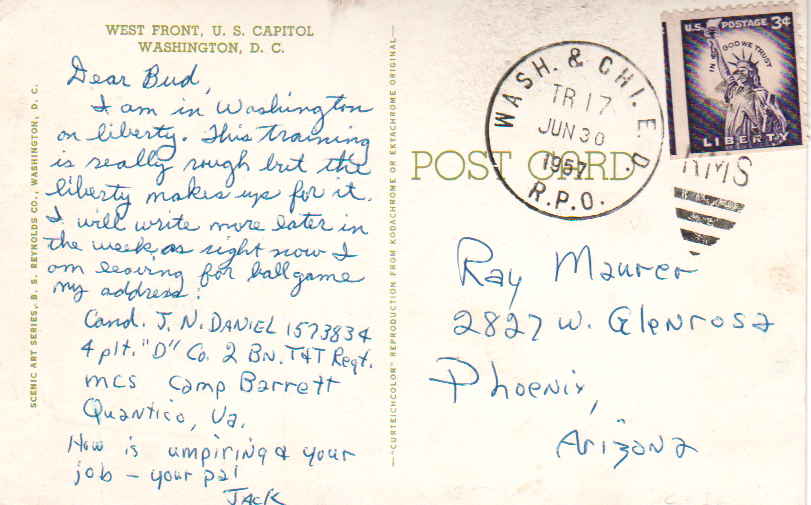 WEST FRONT, U. S. CAPITOL
WASHINGTON, D. C.
Dear Bud,
I am in Washington
on liberty. This training
is really rough but the
liberty makes up for it.
I will write more later in
the week as right now I
am leaving for ballgame
my address:
Cand. J. N. DANIEL 1573834
4 plt. "D" Co. 2 BN. T&T Regt.
MCS Camp Barrett
Quantico, Va.
How is umpiring & your
job – your pal
JACK
SCENIC ART SERIES, B. S. REYNOLDS CO., WASHINGTON, D. C.
—"CURTEICHCOLOR" REPRODUCTION FROM KODACHROME OR EKTACHROME ORIGINAL—
POST CARD
WASH. & CHI. E. D.
TR 17
JUN 30
1957
R.P.O.
RMS
U.S. POSTAGE 3¢
IN GOD WE TRUST
LIBERTY
Ray Maurer
2827 W. Glenrosa
Phoenix,
Arizona